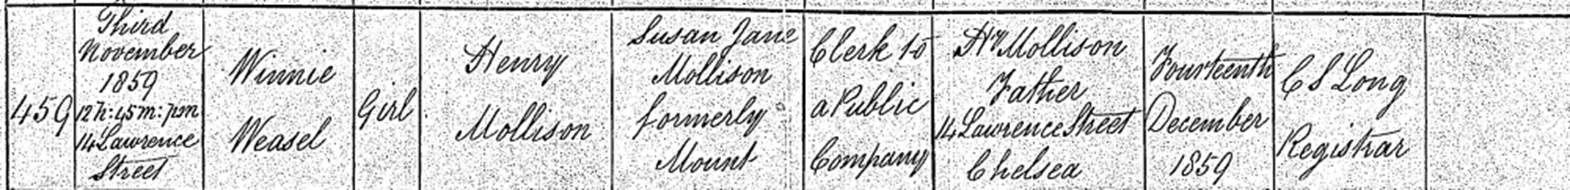 459
Third
November
1859
12h:45m:pm
14 Lawrence
Street
Winnie
Weasel
Girl
Henry
Mollison
Susan Jane
Mollison
formerly
Mount
Clerk to
a Public
Company
Hy Mollison
Father
14 Lawrence Street
Chelsea
Fourteenth
December
1859
C S Long
Registrar